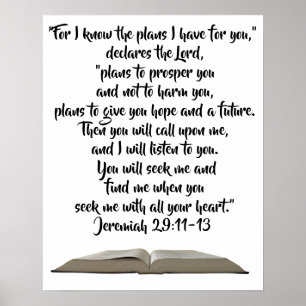 "For I know the plans I have for you,"
declares the Lord,
"plans to prosper you
and not to harm you,
plans to give you hope and a future.
Then you will call upon me,
and I will listen to you.
You will seek me and
find me when you
seek me with all your heart."
Jeremiah 29:11-13